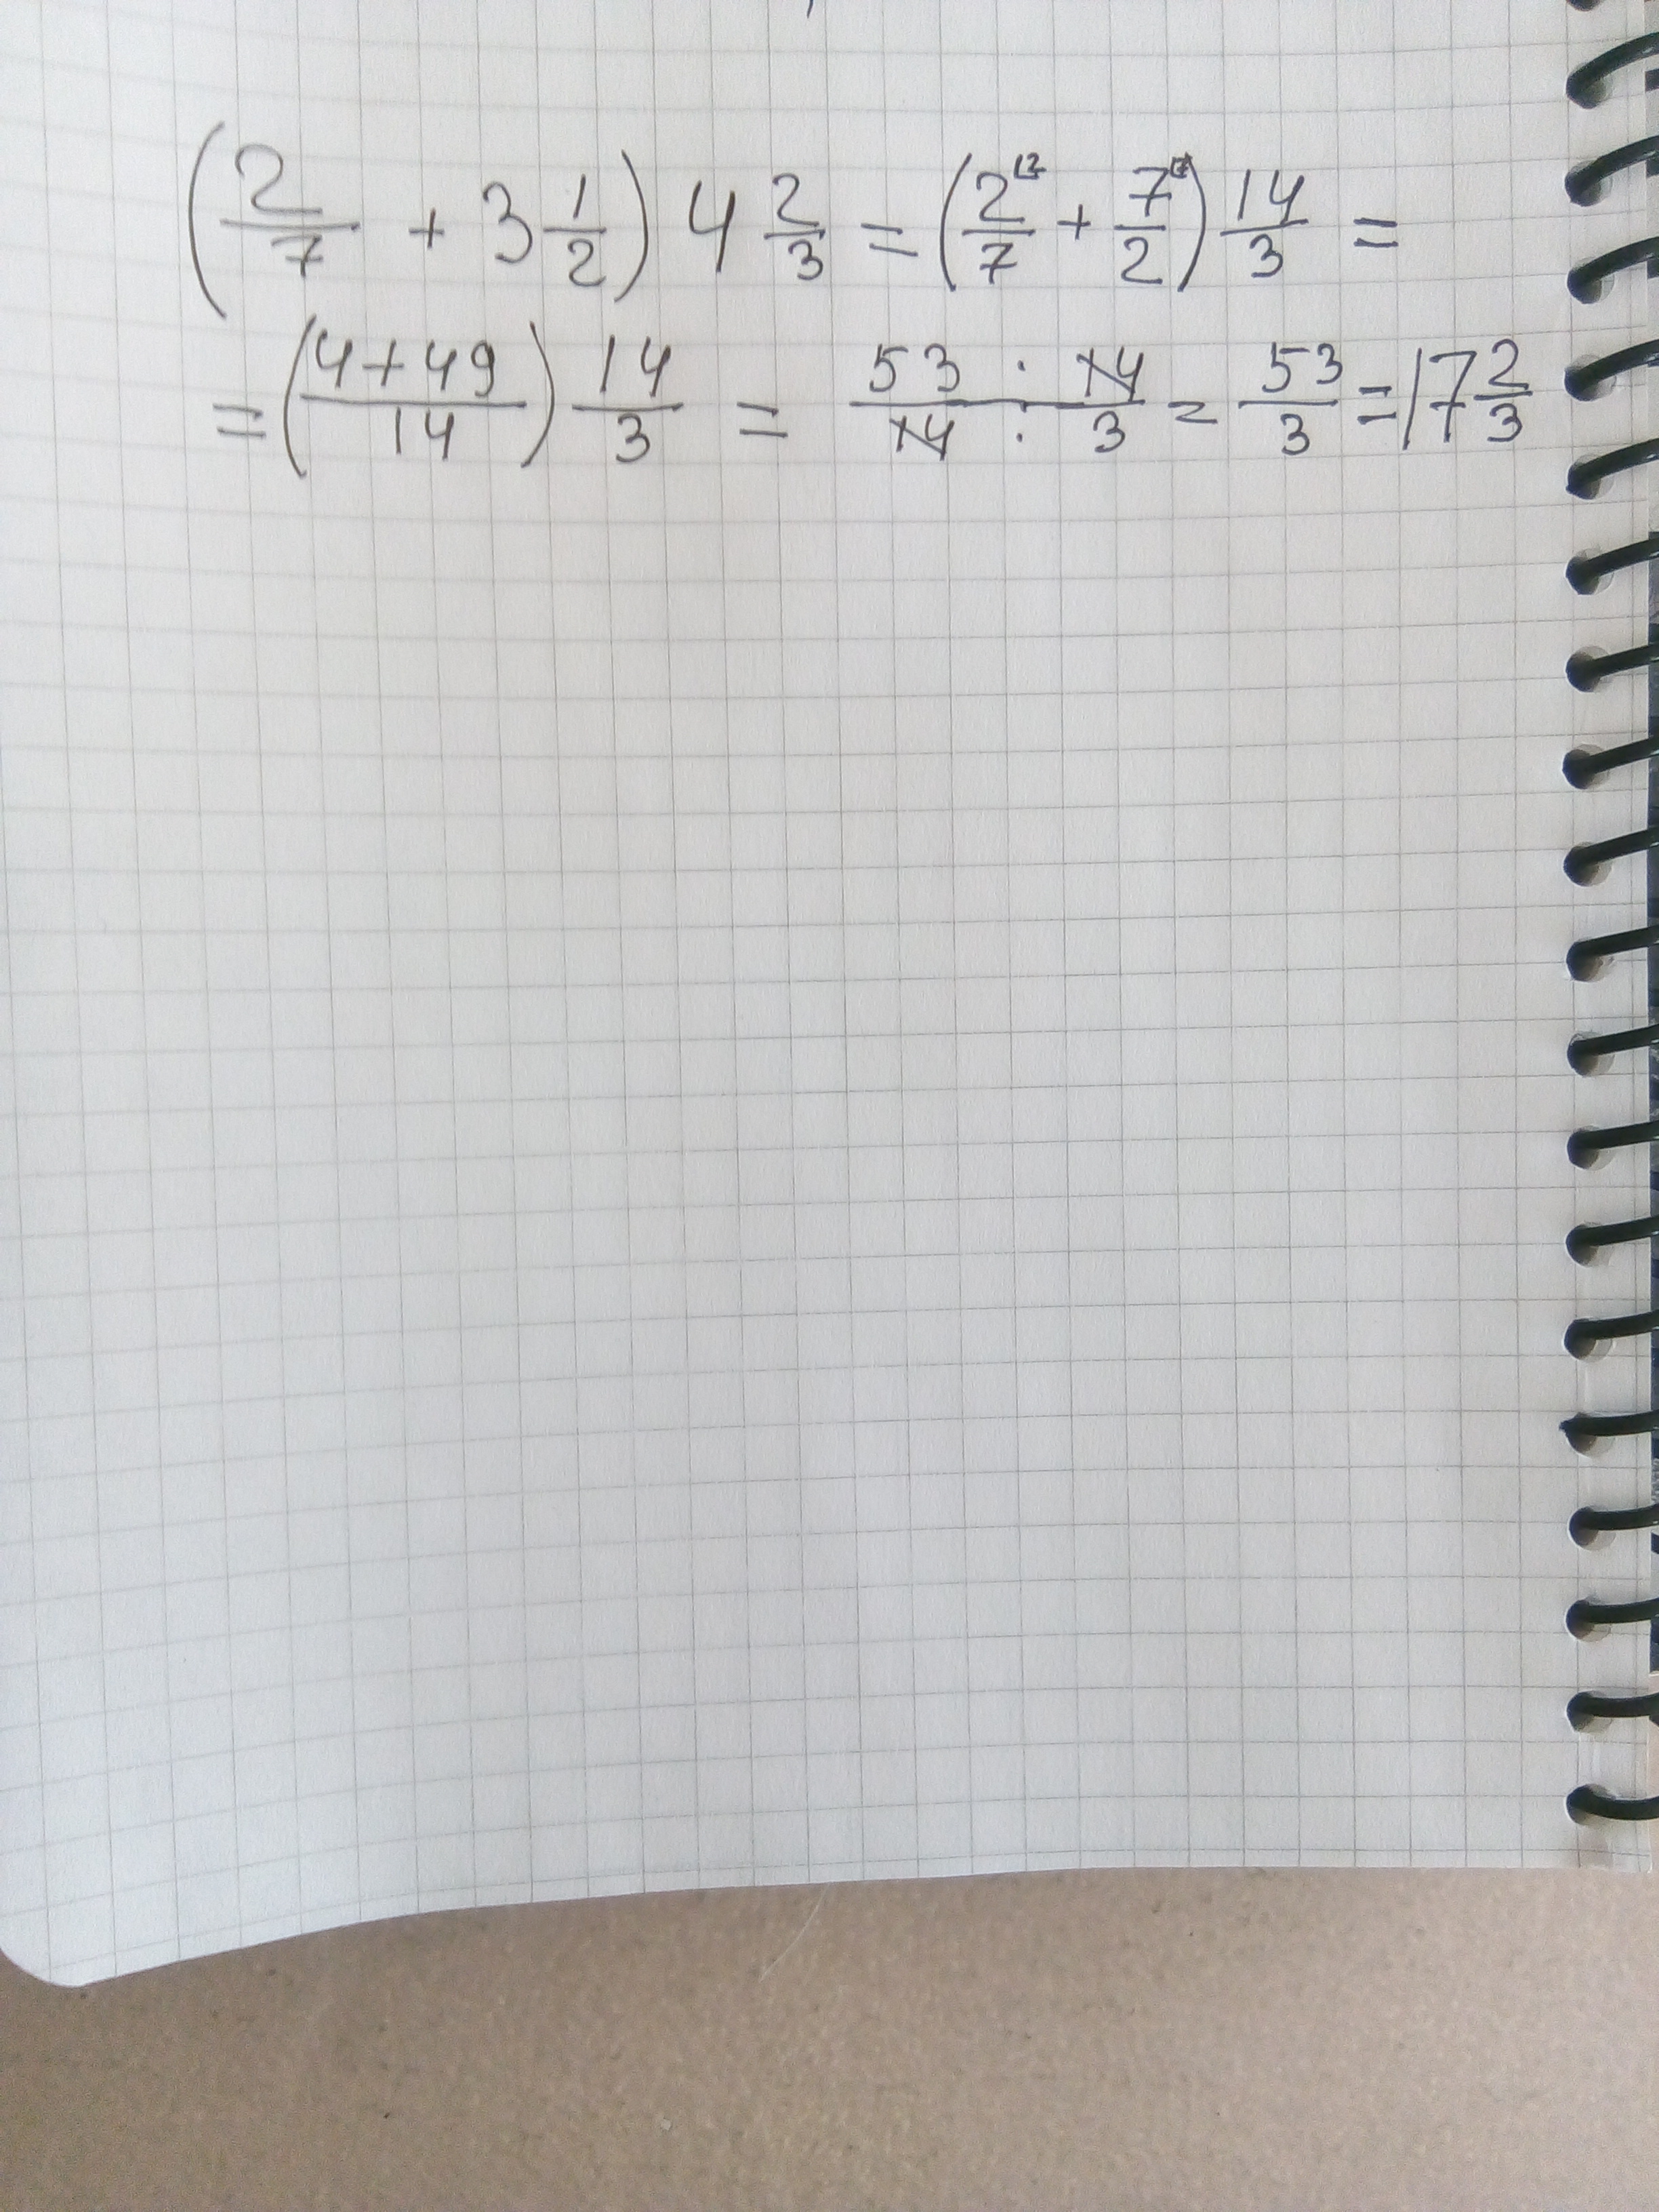 (2/7 + 3 1/2) 4 2/3 = (2⌊2/7 + 7⌊7/2) 14/3 =
= (4+49/14) 14/3 = 53 · 14/14 · 3 = 53/3 = 17 2/3